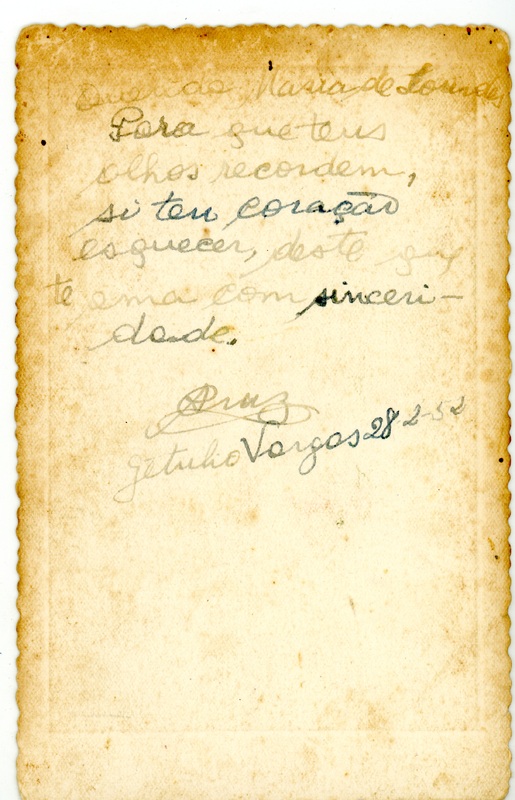 Querida Maria de Lourdes
Para que teus
olhos recordem,
si teu coração
esquecer, deste que
te ama com sinceri-
dade.
Cruz
Getulio Vargas 28-2-52